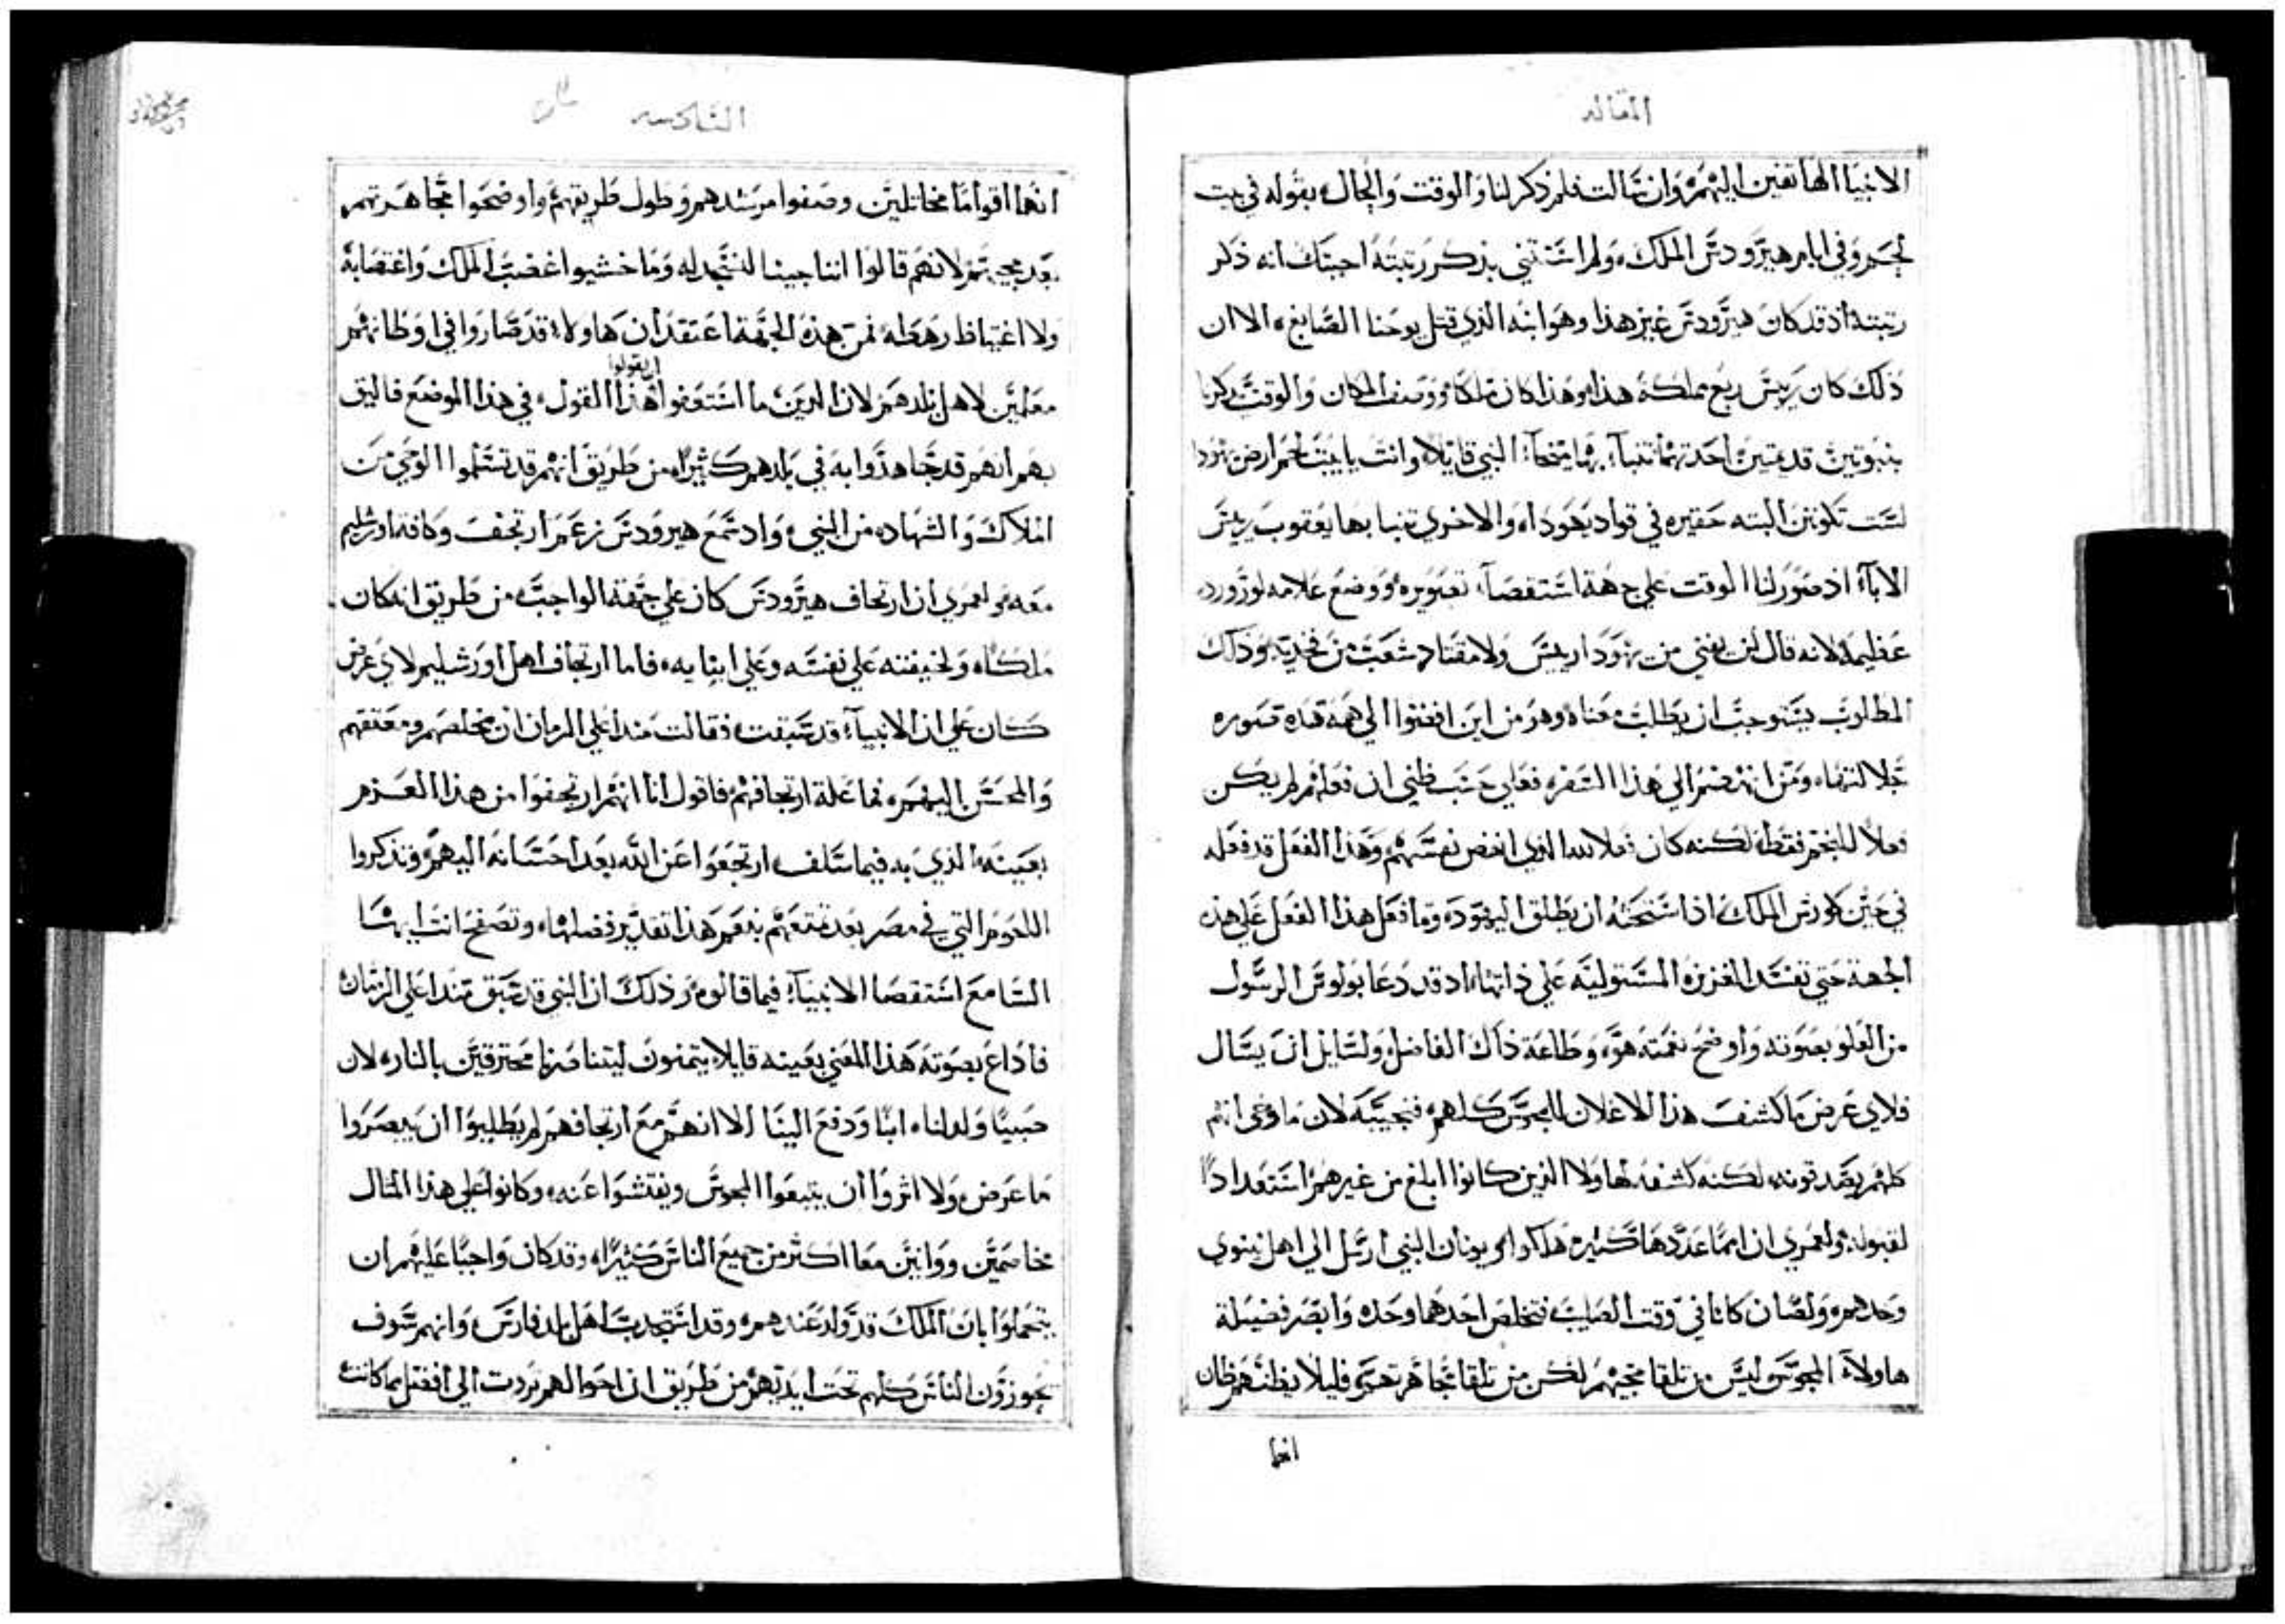 المقاله
الانبيا الهاتفين اليهم وان سالت فلم ذكر لنا والوقت والحال بقوله في بيت
لحم وفي ايام هيرودس الملك ولم استثني بذكر رتبته اجبتك انه ذكر
رتبته اذ قد كان هيرودس غير هذا وهو ابنه الذي قتل يوحنا الصابغ الا ان
ذلك كان رييس ربع مملكة هذا وهذا كان ملكا ووصف المكان والوقت بذكرنا
بنبوتين قديمتين احدتهما تنبا بها ميخا النبي قايلا وانت يا بيت لحم ارض يهودا
لست تكونين البته حقيره في قواد يهودا والاخري تنبا بها يعقوب رييس
الابآ اذ صور لنا الوقت علي جهة استقصا تصويره ووضع علامه لوروده
عظيمه لانه قال لن يفني من يهودا رييس ولا مقتاد شعب من فخديه وذلك
المطلوب يستوجب ان يطلب معناه وهو من اين افضوا الي همة هذه صوره
جلالتها ومن انهضهم الي هذا السفر فعلي حسب ظني ان فعلهم لم يكن
فعلا للنجم فقط لكنه كان فعلا لله الذي انهض نفسهم وهذا الفعل قد فعله
في حين كورش الملك اذ استحثه ان يطلق اليهود وما فعل هذا الفعل علي هذه
الجهة حتي تفسد الغريزة المستولية علي ذاتها اذ قد دعا بولوس الرسول
من العلو بصوته واوضح نعمته هو وطاعة ذاك الفاضل ولسايل ان يسال
فلاي غرض ما كشف هذا الاعلان للمجوس كلهم فنجيبه لان ما وعي انهم
كلهم يصدقونه لكنه كشفه لهاولا الذين كانوا ابلغ من غيرهم استعدادا
لقبوله ولعمري ان امما عددها كثيرة هلكوا ويونان النبي ارسل الي اهل نينوي
وحدهم ولصان كانا في وقت الصلب فتخلص احدهما وحده وابصر فضيلة
هاولآ المجوس ليس من تلقا مجيهم لكن من تلقا مجاهرتهم فليلا يظنهم ظان
انها
السادسه
انها اقواما مخاتلين وصفوا مرشدهم وطول طريقهم واوضحوا مجاهرتهم
بعد مجيهم لانهم قالوا اننا جينا لنسجد له وما خشيوا غضب الملك واغتصابه
ولا اغتياظ رهطه فمن هذه الجهة اعتقد ان هاولا قد صاروا في اوطانهم
معلمين لاهل بلدهم لان الذين ما استعفوا ان يقولوا هذا القول في هذا الموضع فاليق
بهم انهم قد جاهدوا به في بلدهم كثيرا من طريق انهم قد تسلموا الوحي من
الملاك والشهاده من النبي واذ سمع هيرودس زعم ارتجف وكافة اورشليم
معه ولعمري ان ارتجاف هيرودس كان علي جهة الواجب من طريق انه كان
ملكا ولخيفته علي نفسه وعلي ابنايه فاما ارتجاف اهل اورشليم لاي غرض
كان علي ان الانبيآ قد سبقت فقالت منذ اعلي الزمان ان مخلصهم ومعتقهم
والمحسن اليهم فما علة ارتجافهم فاقول انا انهم ارتجفوا من هذا العزم
بعينه الذي به فيما سلف ارتجعوا عن الله بعد احسانه اليهم وتذكروا
اللحوم التي في مصر بعد تمتعهم بنعم هذا تقدير فضلها وتصفح انت ايها
السامع استقصا الانبيآ فيما قالوه وذلك ان النبي قد سبق منذ اعلي الزمان
فاذاع بصوته هذا المعني بعينه قايلا يتمنون ليتنا صرنا محترقين بالنار لان
صبيا ولد لنا ابنا ودفع الينا الا انهم مع ارتجافهم لم يطلبوا ان يبصروا
ما عرض ولا اثروا ان يتبعوا المجوس ويفتشوا عنه وكانوا علي هذا المثال
مخاصمين ووانيين معا اكثر من جميع الناس كثيرا وقد كان واجبا عليهم ان
يتحملوا بان الملك قد ولد عندهم وقد استجدب اهل بلد فارس وانهم سوف
يحوزون الناس كلهم تحت ايديهم من طريق ان احوالهم بردت الي افضل مما كانت